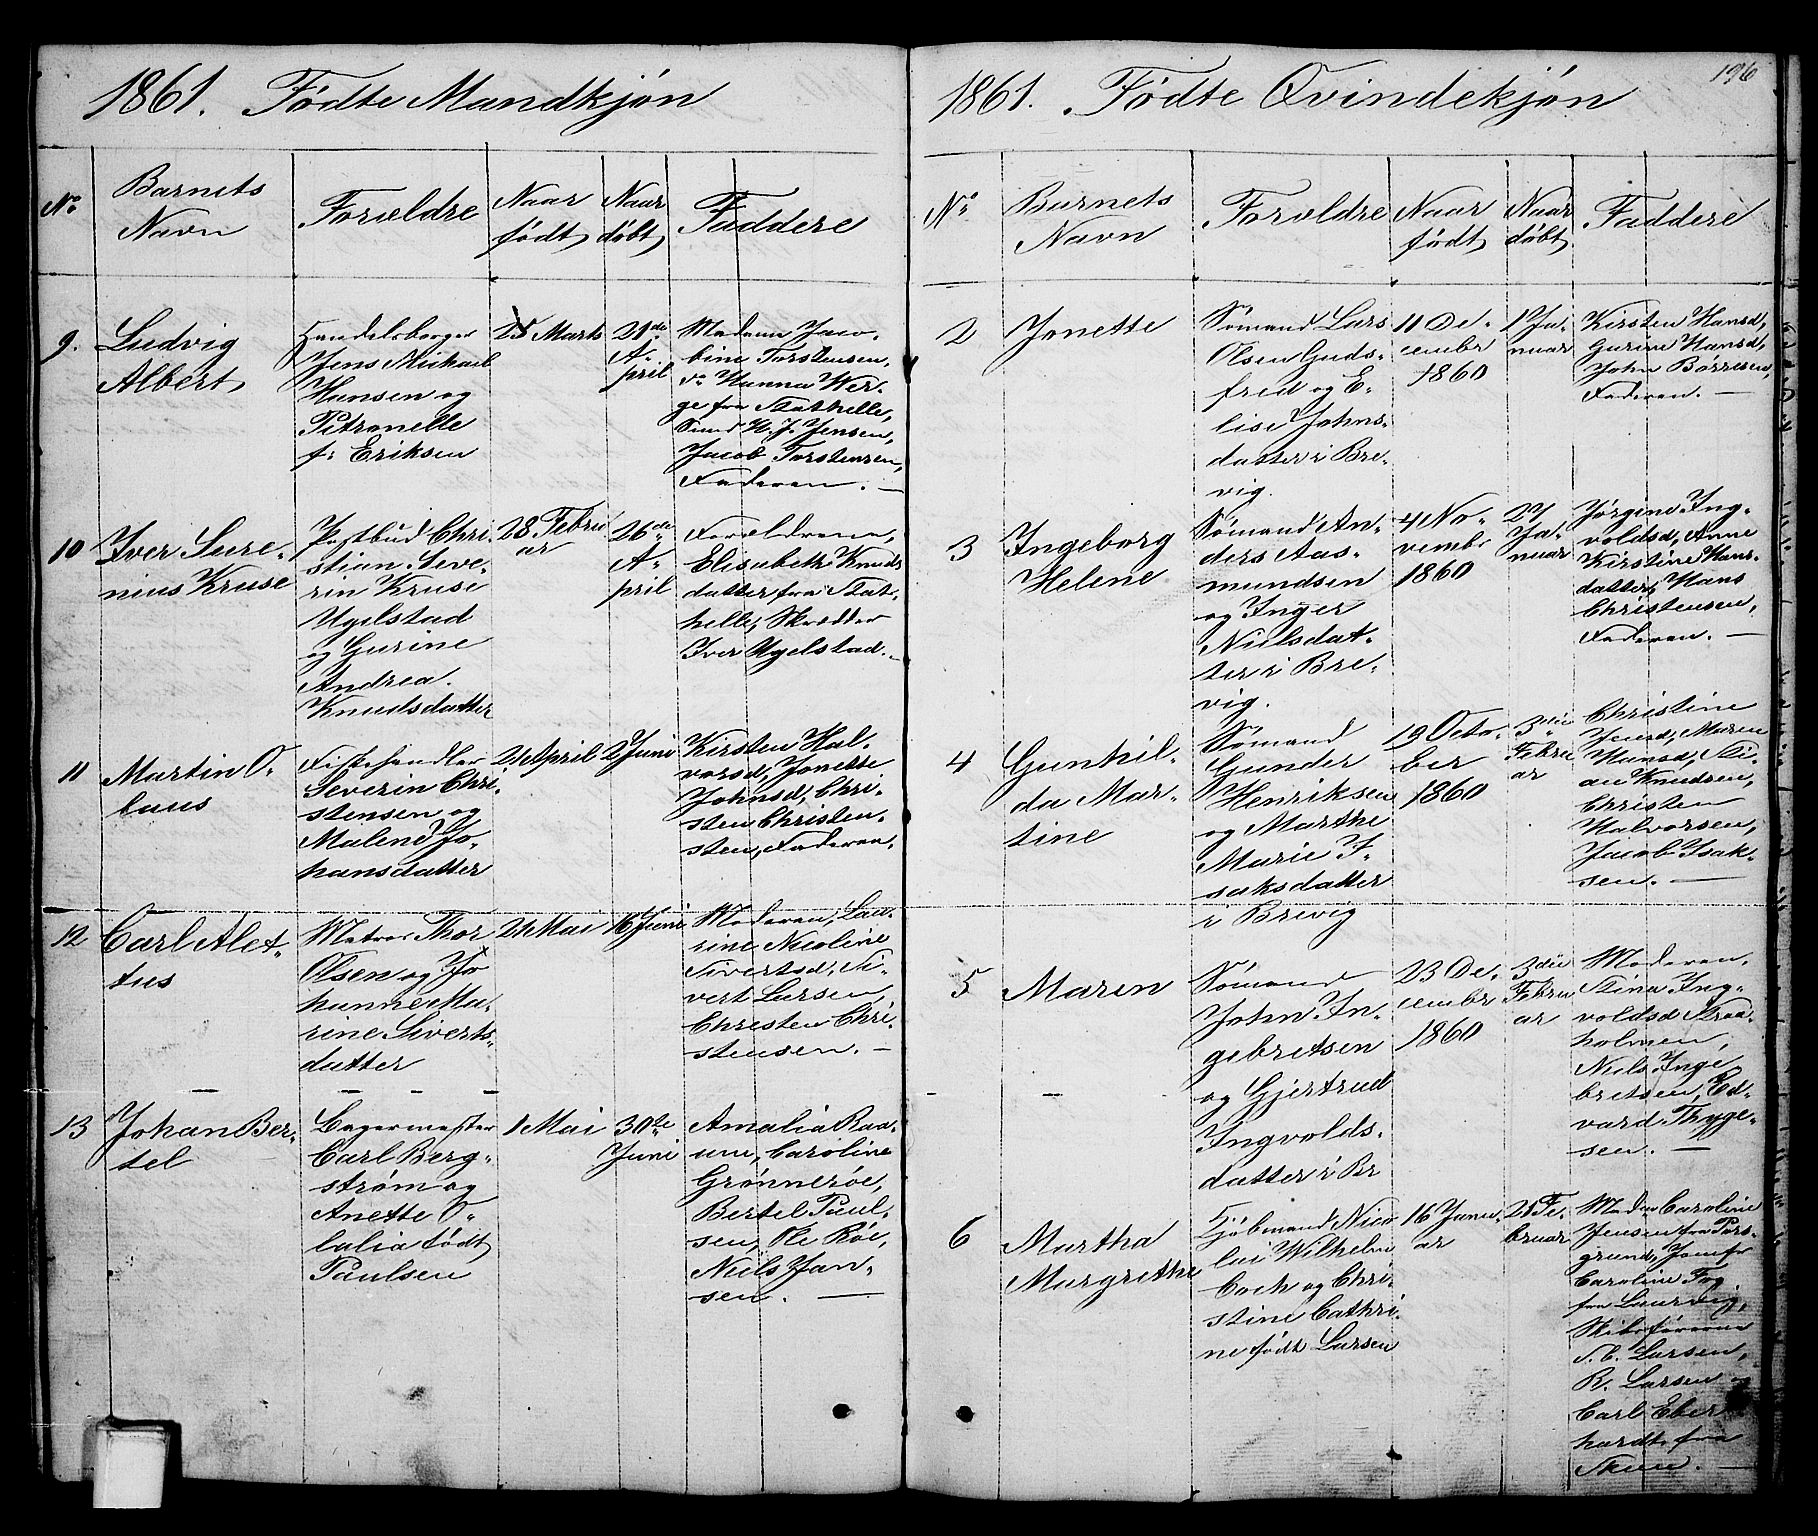 1861. Fødte Mandkjøn
No.
Barnets
Navn
Forældre
Naar
født
Naar
døbt
Faddere
9.
Ludvig
Albert
Handelsborger
Jens Michael
Hansen og
Petronelle
f: Eriksen
25 Marts
21de
A-
pril
Madam Jaco-
bine Torstensen,
do Hanna Wer-
ge fra Stathelle,
H. J. Jensen,
Jacob Torstensen,
Faderen. —
10
Iver Sure-
nius Kruse
Postbud Chri-
stian Seve-
rin Kruse
Ugelstad
og Gurine
Andrea
Knudsdatter
28 Febru
ar
26de
A-
pril
Forældrene,
Elisabeth Knuds
datter fra Stat-
helle, Skrædder
Iver Ugelstad. —
11
Martin O-
laus
Fiskehandler
Severin Chri-
stensen og
Malene Jo-
hansdatter
21 April
2 Juni
Kirsten Hal-
vorsd, Jonette
Johnsd, Chri-
sten Christen-
sten, Faderen.
12
Carl Alet-
tus
Matros Thor
Olsen og Jo
hanne Ma-
rine Siverts-
datter
21 Mai
16 Juni
Moderen, Lau-
rine Nicoline
Sivertsd, Si-
vert Larsen,
Christen Chri-
stensen. —
13
Johan Ber-
tel
Lagermester
Carl Berg-
strøm og
Anette O-
lalia født
Paulsen
1 Mai
30te
Juni
Amalia Raa-
um, Caroline
Grønnerøe,
Bertel Paul-
sen, Ole Røe,
Niels Jan-
sen. —
196
1861. Fødte Qvindekjøn
No.
Barnets
Navn
Forældre
Naar
født
Naar
døbt
Faddere
2
Jonette
Sømand Lars
Olsen Guds-
fred og E-
lise Johns-
datter i Bre-
vig.
11 De-
cembr
1860
1 Ja-
nuar
Kirsten Hansd,
Gurine Hansd,
John Børresen,
Faderen. —
3
Ingeborg
Helene
Sømand An-
ders Aas-
mundsen
og Inger
Nielsdat-
ter i Bre-
vig.
4 No-
vembr
1860
27
Ja-
nuar
Jørgine Ing-
voldsd, Anne
Kirstine Hans-
datter, Hans
Christensen,
Faderen. —
4
Gunhil-
da Mar-
tine
Sømand
Gunder
Henriksen
og Marthe
Marie I-
saksdatter
i Brevig
19 Octo-
ber
1860
3die
Febru
ar
Christine
Jensd, Maren
Hansd, Sti-
an Knudsen,
Christen
Halvorsen,
Jacob Isak-
sen. —
5
Maren
Sømand
John In-
gebretsen
og Gjertrud
Ingvolds-
datter i Br
23 De-
cembr
1860
3die
Febru
ar
Moderen.
Stina Ing-
voldsd Straa-
holmen,
Niels Inge
bretsen, Ed-
vard Thyge-
sen. —
6
Martha
Margrethe
Kjøbmand Nico
lai Wilhelm
Coch og Chri-
stine Cathri-
ne født Larsen
16 Janu-
ar
21 Fe-
bruar
Madm Caroline
Jensen fra Pors-
grund, Jomfr
Caroline Fog
fra Laurvig,
Skibsførerne
S. C. Larsen,
R. Larsen og
Carl Eber
hardt, fra
Skien. —